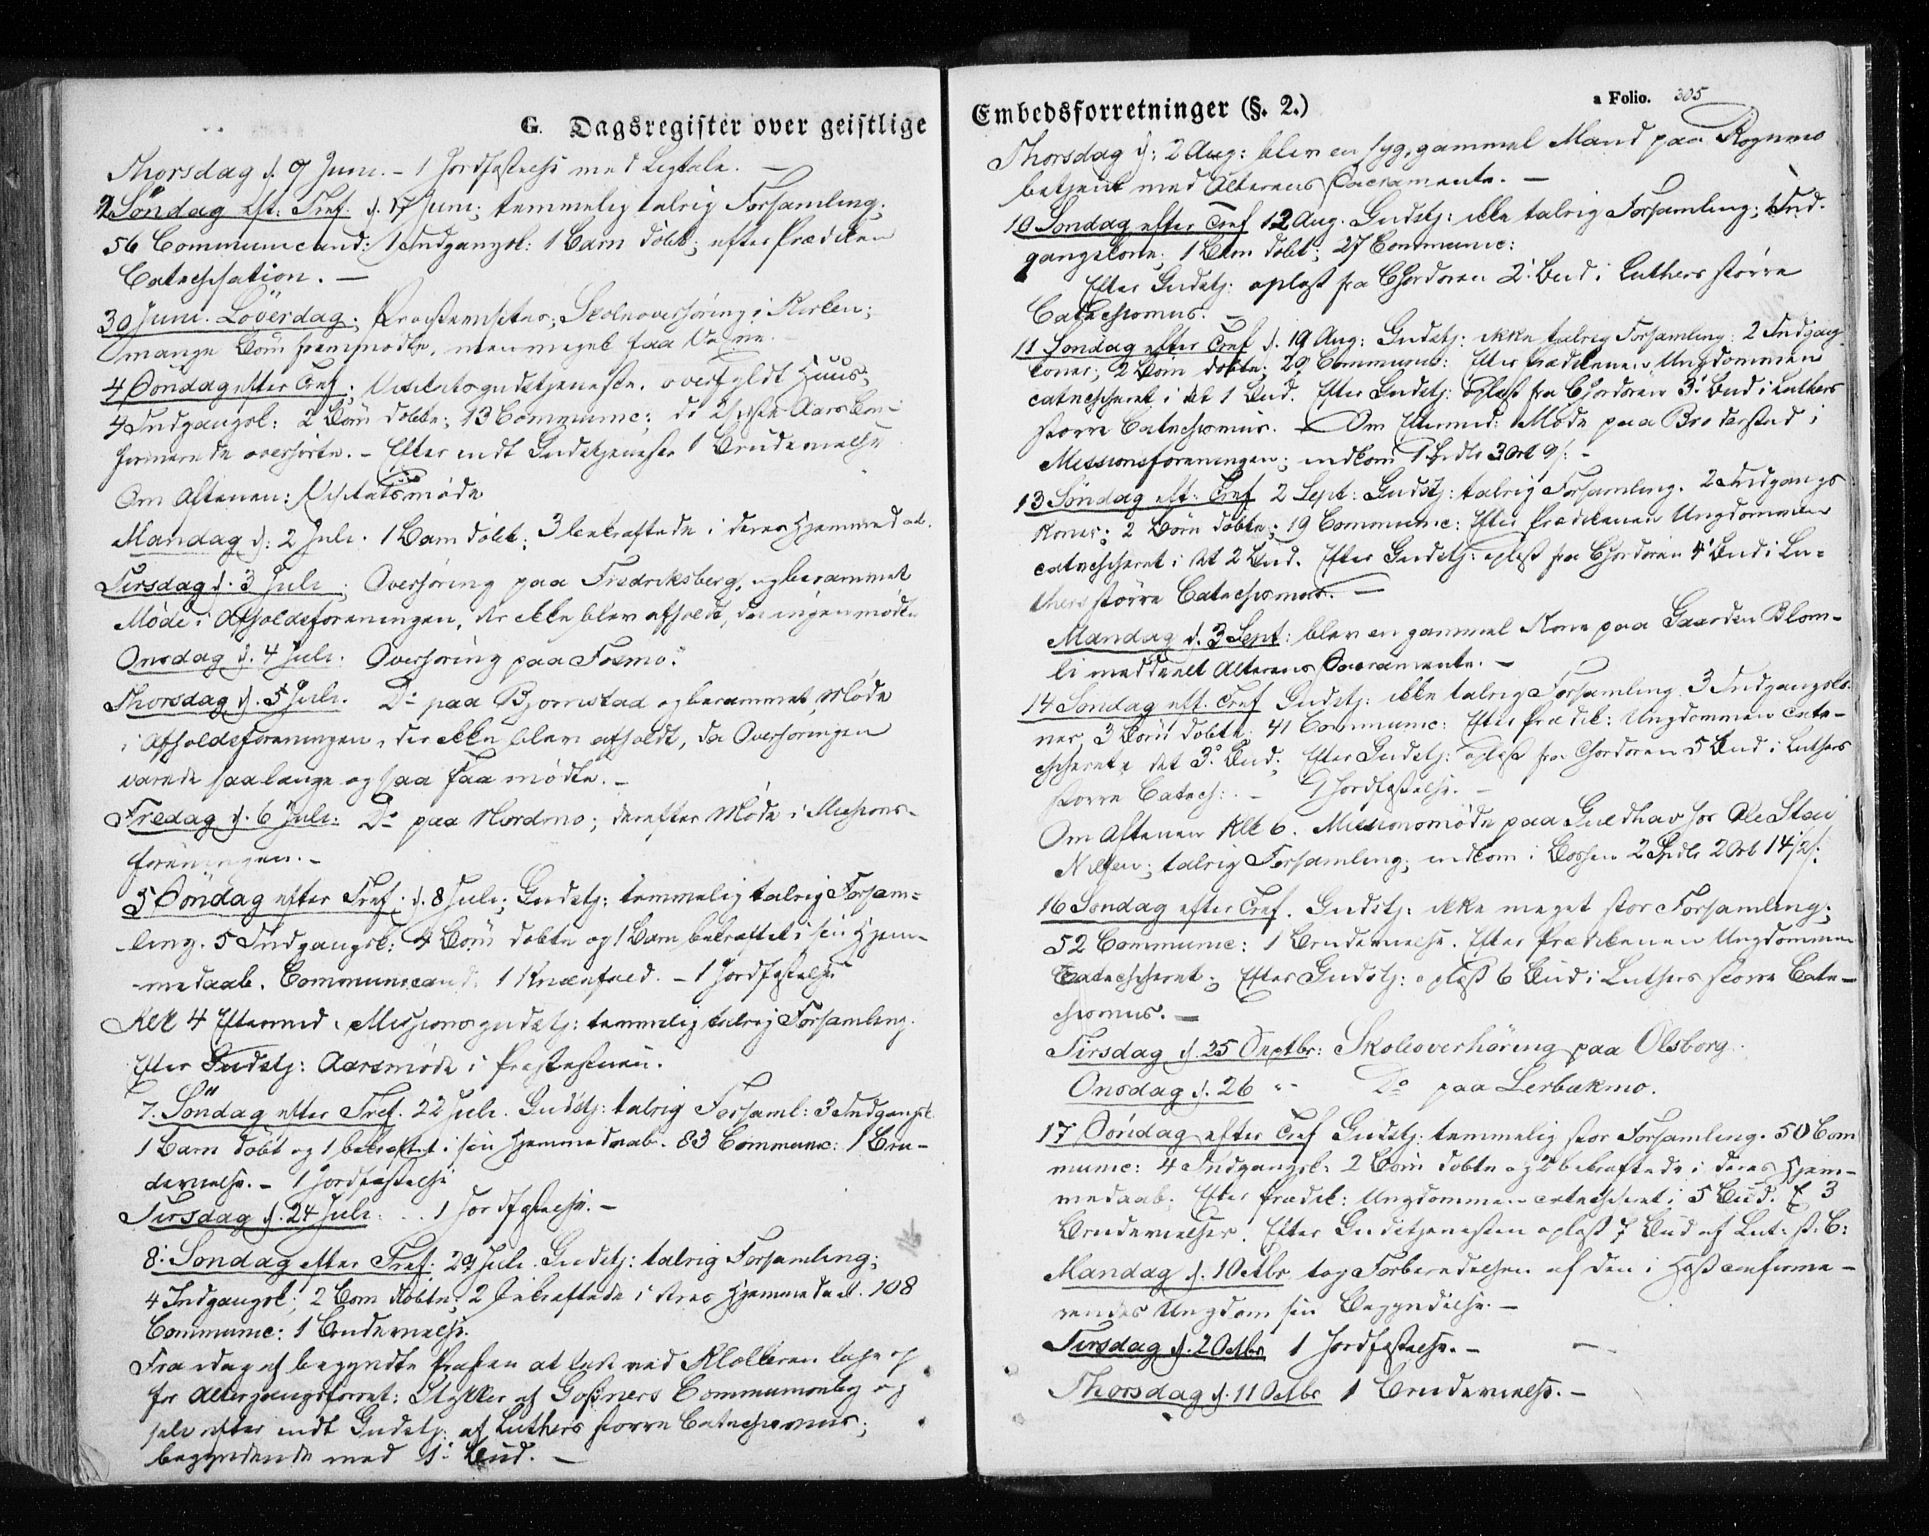 G. Dagsregister over geistlige
Thorsdag d. 7 Juni. – 1 Jordfæstelse med Ligtale. –
2 Söndag eft: Tref. d. 17 Juni; temmelig talrig Forsamling;
56 Communicand: 1 Indgangsk: 1 Barn döbt; efter Prædiken
Catechisation. –
30 Juni. Löverdag. Skoleoverhöring i Kirken;
mange Börn fremmödte, men meget faa Voxne. –
4 Söndag efter Tref; Visitatsgudstjeneste. overfyldt Huus;
4 Indgangsk: 2 Börn döbte; 13 Communic: de sidste Aars Con-
firmerede overhörte. – Efter endt Gudstjeneste 1 Brudevielse
Om Aftenen: Visitatsmöde
Mandag d: 2 Juli. 1 Barn döbt; 3 bekræftede i deres Hjemmedaab.
Tirsdag d. 3 Juli; Overhöring paa Fredriksberg, og berammet
Möde i Afholdsforeningen, der ikke blev afholdt, da ingen mödte
Onsdag d. 4 Juli. Overhöring paa Fosmo.
Thorsdag d. 5 Juli. Do paa Bjørnstad og berammet Möde
i Afholdsforeningen, der ikke blev afholdt, da Overhöringen
varede saa længe og saa faa mödte. –
Fredag d. 6 Juli: Do paa Nordmo; derefter Möde i Missions-
foreningen. –
5 Söndag efter Tref. d. 8 Juli; Gudstj: temmelig talrig Forsam-
ling. 5 Indgangsk: 4 Börn döbte og 1 Barn bekræftet i sin Hjem-
medaab. Communicand. 1 Knæfald. – 1 Jordfæstelse
Klk 4 Eftermid. Missionsgudstj: temmelig talrig Forsamling.
Efter Gudstj: Aarsmöde i Præstestuen.
7. Söndag efter Tref. 22 Juli. Gudstj: talrig Forsaml: 3 Indgangsk.
1 Barn döbt og 1 bekræftet i sin Hjemmedaab. 83 Communic: 1 Bru-
devielse. – 1 Jordfæstelse
Tirsdag d. 24 Juli. 1 Jordfæstelse. –
8. Söndag efter Tref: 29 Juli. Gudstj: talrig Forsamling;
4 Indgangsk; 2 Börn döbte; 2 bekræftede i deres Hjemmedaab. 108
Communic: 1 Brudevielse.
Fra idag af begyndte Præsten at lade ved Klokkeren læse op
før Altergangsforret: Stykker af Goßners Communionbog og
selv efter endt Gudstj: af Luthers større Catechismus;
begyndende med 1. Bud. –
Embedsforretninger (§. 2.)
a Folio. 305
Thorsdag d: 2 Aug: blev en syg, gammel Mand paa Rognmo
betjent med Alterens Sacramente. –
10 Söndag efter Tref 12 Aug. Gudstj: ikke talrig Forsamling; 1 Ind-
gangskone; 1 Barn döbt; 27 Communic:
Efter Gudstj: oplæst fra Chordören 2. Bud i Luthers større
Catechismus. –
11 Söndag efter Tref d. 19 Aug: Gudstj: ikke talrig Forsamling: 2 Indgang-
koner; 2 Börn döbte; 20 Communic: Efter Prædikenen Ungdommen
catechiseret i det 1 Bud. Efter Gudstj: oplæst fra Chordören 3. Bud i Luthers
större Catechismus. – Om Eftermid: Möde paa Broderstad i
Missionsforeningen; indkom 1 Spdlr 3 Ort 9 s: –
13 Söndag eft: Tref 2 Sept: Gudstj: talrig Forsamling. 2 Indgangs
koner; 2 Börn döbte; 19 Communic: Efter Prædikenen Ungdommen
catechiseret i det 2 Bud. Efter Gudstj: oplæst fra Chordören 4. Bud i Lu-
thers större Catechismus. –
Mandag d. 3 Sept: blev en gammel Kone paa Gaarden Blom-
li meddeelt Alterens Sacramente. –
14 Söndag eft. Tref Gudstj: ikke talrig Forsamling. 3 Indgangsko-
ner, 3 Börn döbte. 41 Communic: Efter Prædik: Ungdommen cate-
chiseret i det 3. Bud; Efter Gudstj: oplæst fra Chordören 5 Bud i Luthers
större Catech: – 9 Jordfæstelse. –
Om Aftenen Klk 6. Missionsmöde paa Guldhav hos Ole Stai
Nilsen; talrig Forsamling; indkom i Bössen 2 Spdlr 2 Ort 14 s:
16 Söndag efter Tref. Gudstj: ikke meget stor Forsamling;
52 Communic: 1 Brudevielse. Efter Prædikenen Ungdommen
Catechiseret; Efter Gudstj: oplæst 6 Bud i Luthers större Cate-
chismus. –
Tirsdag d. 25 Septbr: Skoleoverhöring paa Olsborg.
Onsdag d. 26 " Do paa Lerbækmo.
17 Söndag efter Tref Gudstj: temmelig stor Forsamling. 50 Com
munic: 4 Indgangsk: 2 Börn döbte og 2 bekræftede i deres Hjem-
medaab. Efter Prædik: Ungdommen catechiseret i 5 Bud. 3
Brudevielser. Efter Gudstjenesten oplæst 7 Bud af Lut: st. C:
Mandag d. 1 Octbr tog Forberedelsen af den i Höst confirme-
rendes Ungdom sin Begyndelse. –
Tirsdag d. 2 Octbr 1 Jordfæstelse. –
Thorsdag d. 11 Octbr 1 Brudevielse. –